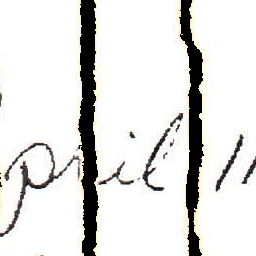 pril 11